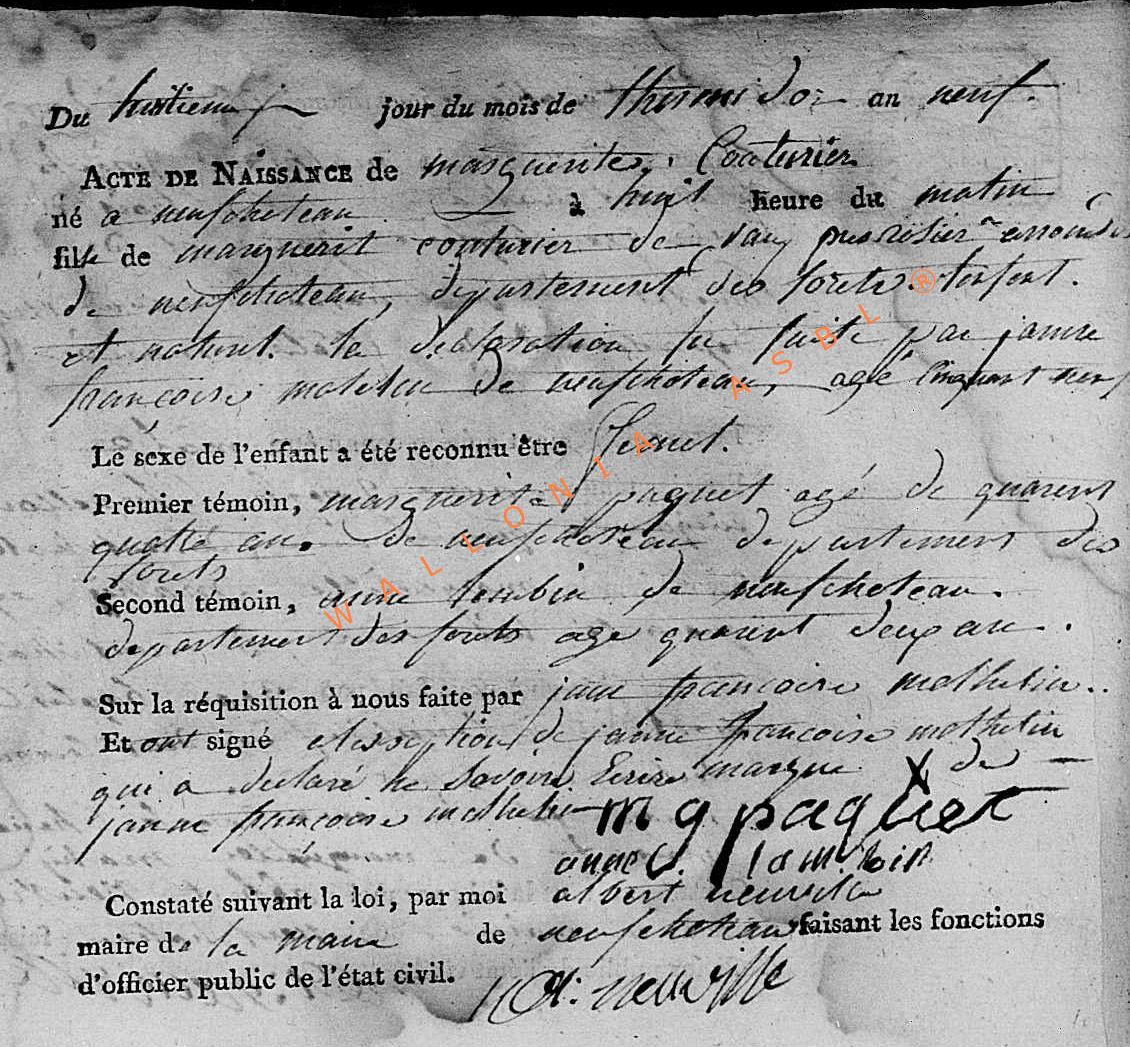 Du huitieme jour du mois de thermidor an neuf.
ACTE DE NAISSANCE de marguerite Couturier
né a neufchateau à huit heure du matin
fille de marguerit couturier de
de neufchateau, departement des forets. lenfant.
et naturel. la declaration fu faite par janne
francoise de neufchateau, agé cinquant neuf
Le sexe de l'enfant a été reconnu être femel.
Premier témoin, marguerite paquet agé de quarent
quatte an. de neufchateau departement des
forets
Second témoin, anne lambin de neufchateau.
departement des forets age quarent deux an.
Sur la réquisition à nous faite par janne francoise mathelin.
Et ont signé de janne francoise mathelin
qui a declaré ne savoire Ecrire marque X de
janne francoise mathelin m g paquet
anne lambin
Constaté suivant la loi, par moi albert neuville
maire de la mairie de neufchateau faisant les fonctions
d'officier public de l'état civil. neuville
WALLONIA ASBL ®